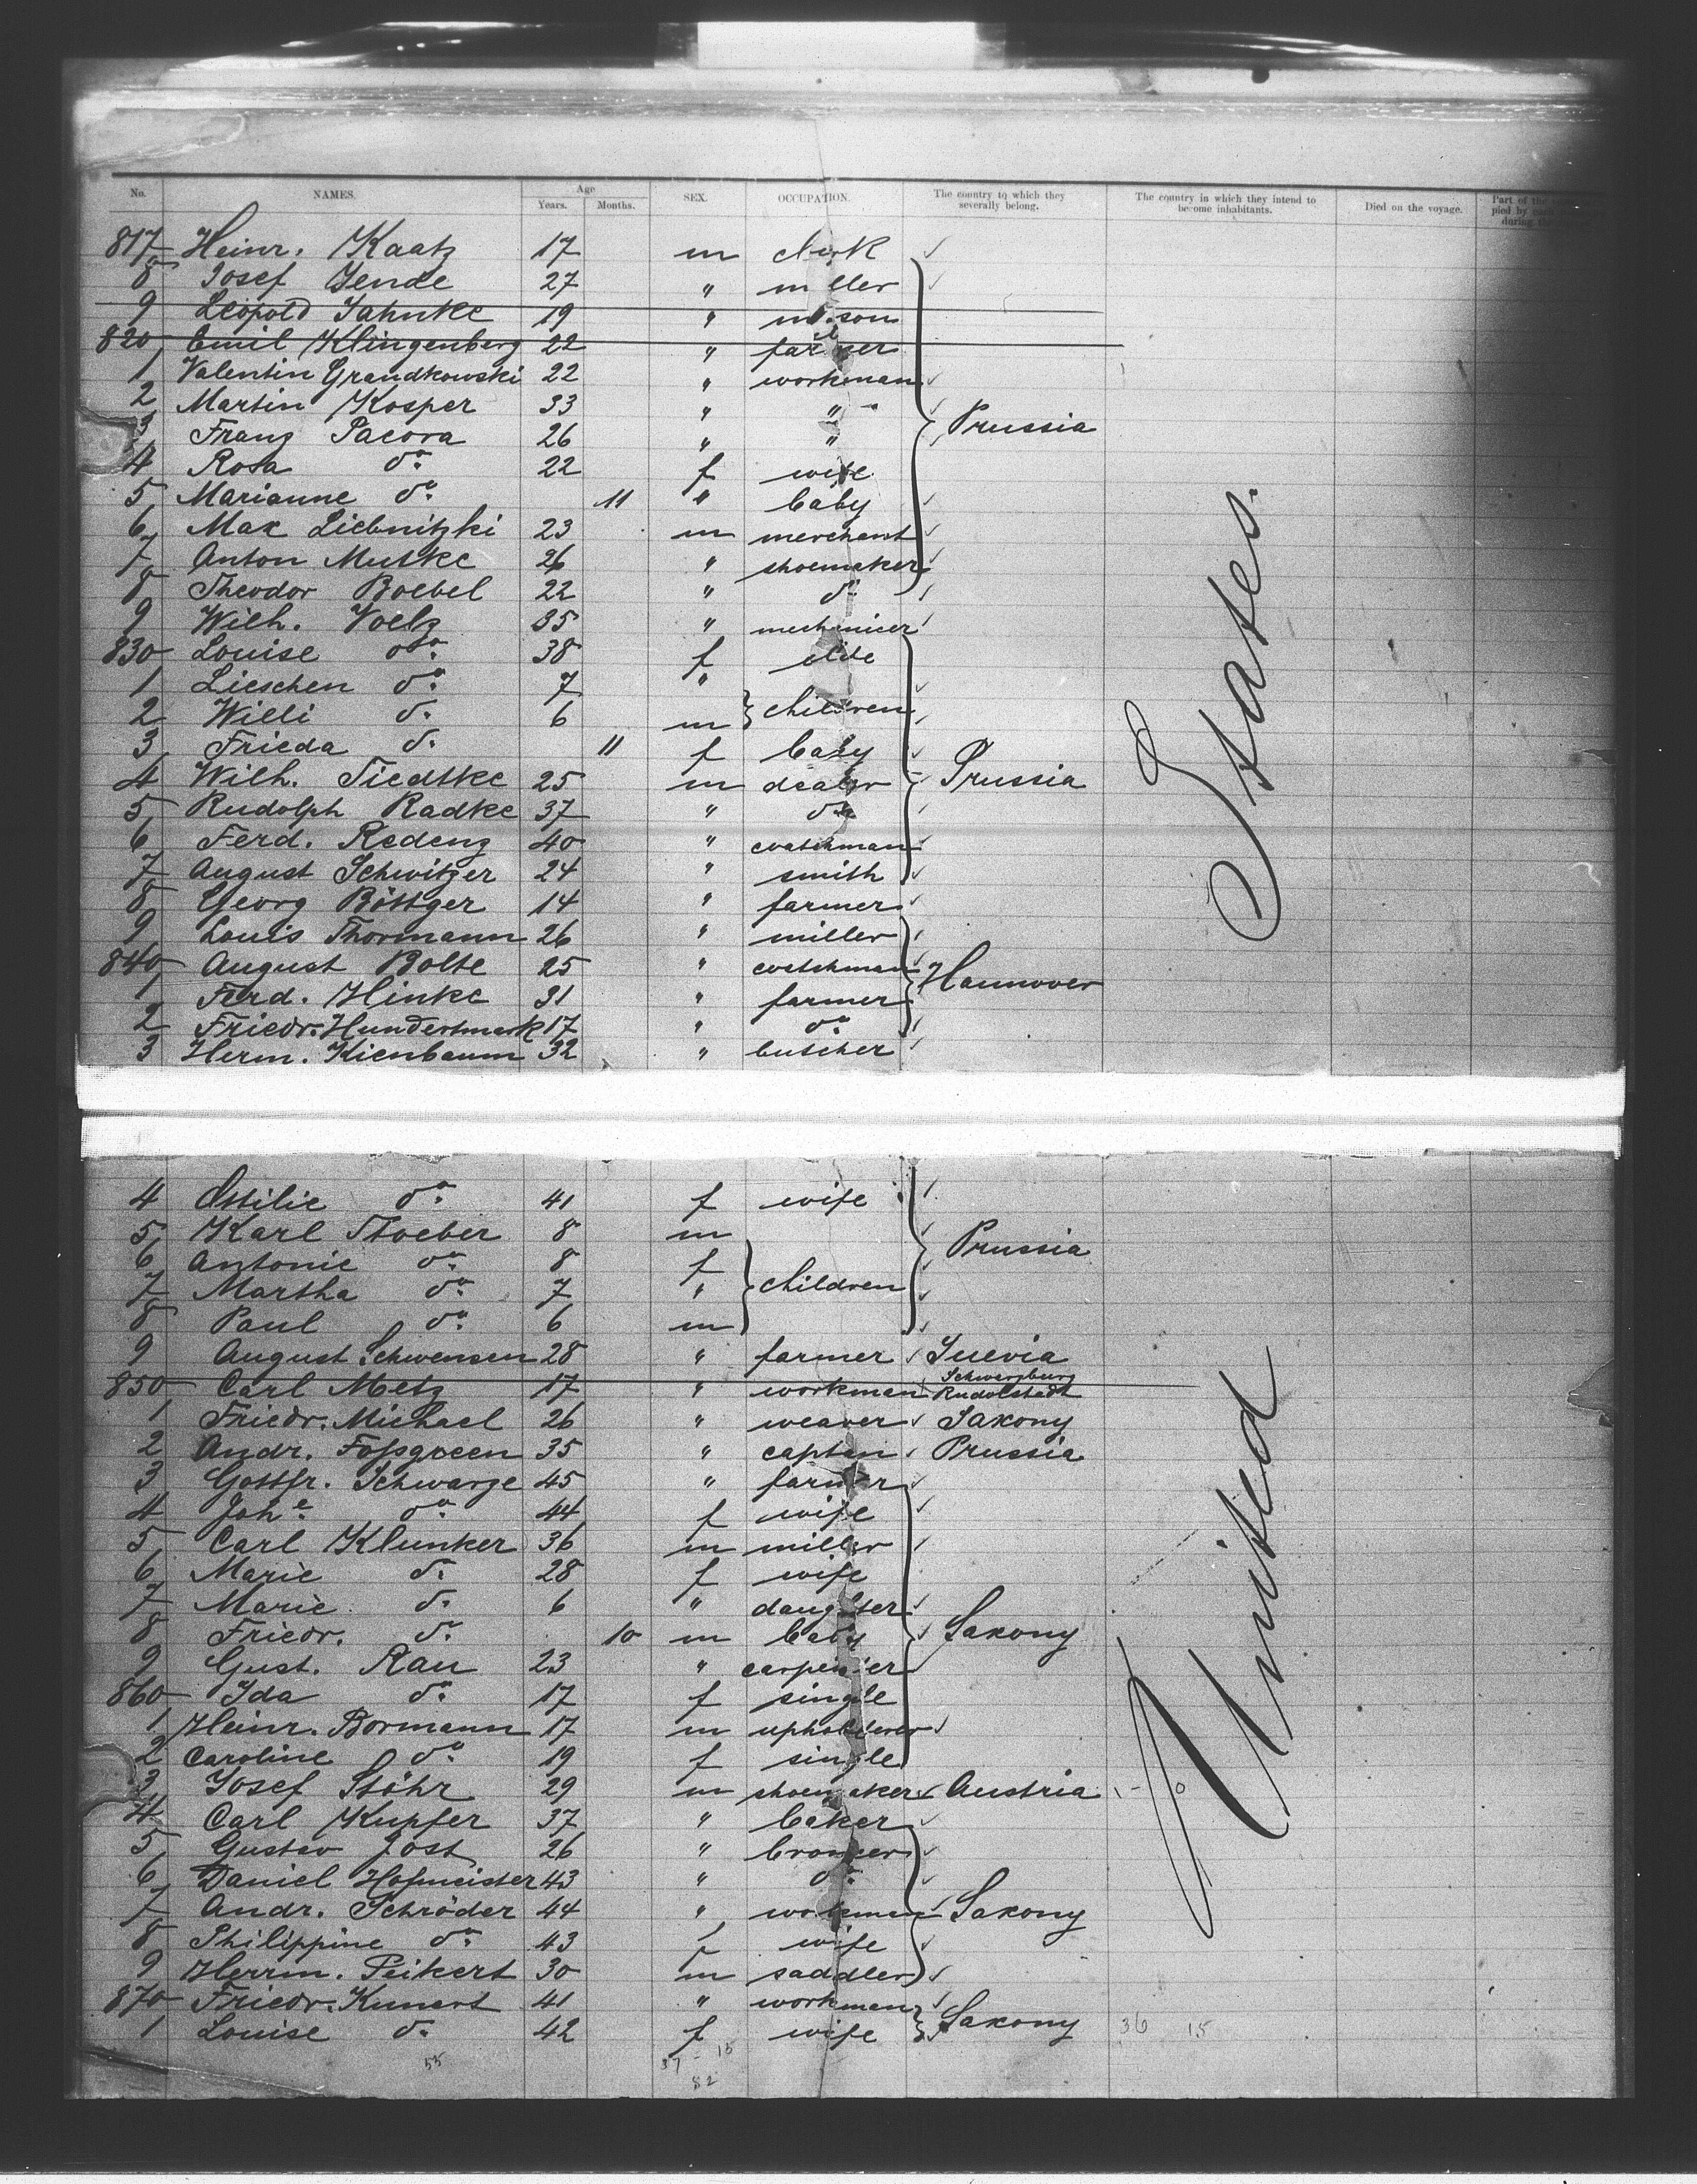 No. NAMES. Age Years. Months. SEX. OCCUPATION. The country to which they severally belong. The country in which they intend to become inhabitants. Died on the voyage. Part of the
817 Heinr. Kaatz 17 m clerk
8 Josef Jende 27 " miller
9 Leopold Jahnke 19 " mason
820 Emil Klingenberg 22 " farmer
1 Valentin Grandkowski 22 " workman
2 Martin Kosper 33 " "
Prussia
3 Franz Pacora 26 " "
4 Rosa do. 22 f wife
5 Marianne do. 11 " baby
6 Max Liebnitzki 23 m merchant
7 Anton Mutke 26 " shoemaker
8 Theodor Boebel 22 " do.
9 Wilh. Voelz 35 " mechanicer
830 Louise do. 38 f wife
1 Lieschen do. 7 "
2 Willi do. 6 m children
3 Frieda do. 11 f baby
4 Wilh. Tiedtke 25 m dealer Prussia
5 Rudolph Radke 37 " do.
6 Ferd. Redenz 40 " coatchman
7 August Schwitzer 24 " smith
8 Georg Böttger 14 " farmer
9 Louis Thormann 26 " miller
840 August Bolte 25 " coatchman Hannover
1 Ferd. Hinke 31 " farmer
2 Friedr. Hundertmark 17 " do.
3 Herm. Kienbaum 32 " butcher
4 Ottilie do. 41 f wife
5 Karl Stoeber 8 m Prussia
6 Antonie do. 8 f
7 Martha do. 7 " children
8 Paul do. 6 m
9 August Schwensen 28 " farmer Suevia
850 Carl Metz 17 " workman Schwarzburg Rudolstadt
1 Friedr. Michael 26 " weaver Saxony
2 Andr. Foßgreen 35 " captan Prussia
3 Gottfr. Schwarze 45 " farmer
4 Johe. do. 44 f wife
5 Carl Klunker 36 m miller
6 Marie do. 28 f wife
7 Marie do. 6 " daughter
8 Friedr. do. 10 m baby Saxony
9 Gust. Rau 23 " carpenter
860 Ida do. 17 f single
1 Heinr. Bormann 17 m upholderer
2 Caroline do. 19 f single
3 Josef Stöhr 29 m shoemaker Austria
4 Carl Kupfer 37 " baker
5 Gustav Jost 26 "
6 Daniel Hofmeister 43 " do.
7 Andr. Schröder 44 " workman Saxony
8 Philippine do. 43 f wife
9 Herrm. Peikert 30 m saddler
870 Friedr. Kunert 41 " workman
1 Louise do. 42 f wife Saxony 36 15
55 37 - 15
82
United States.